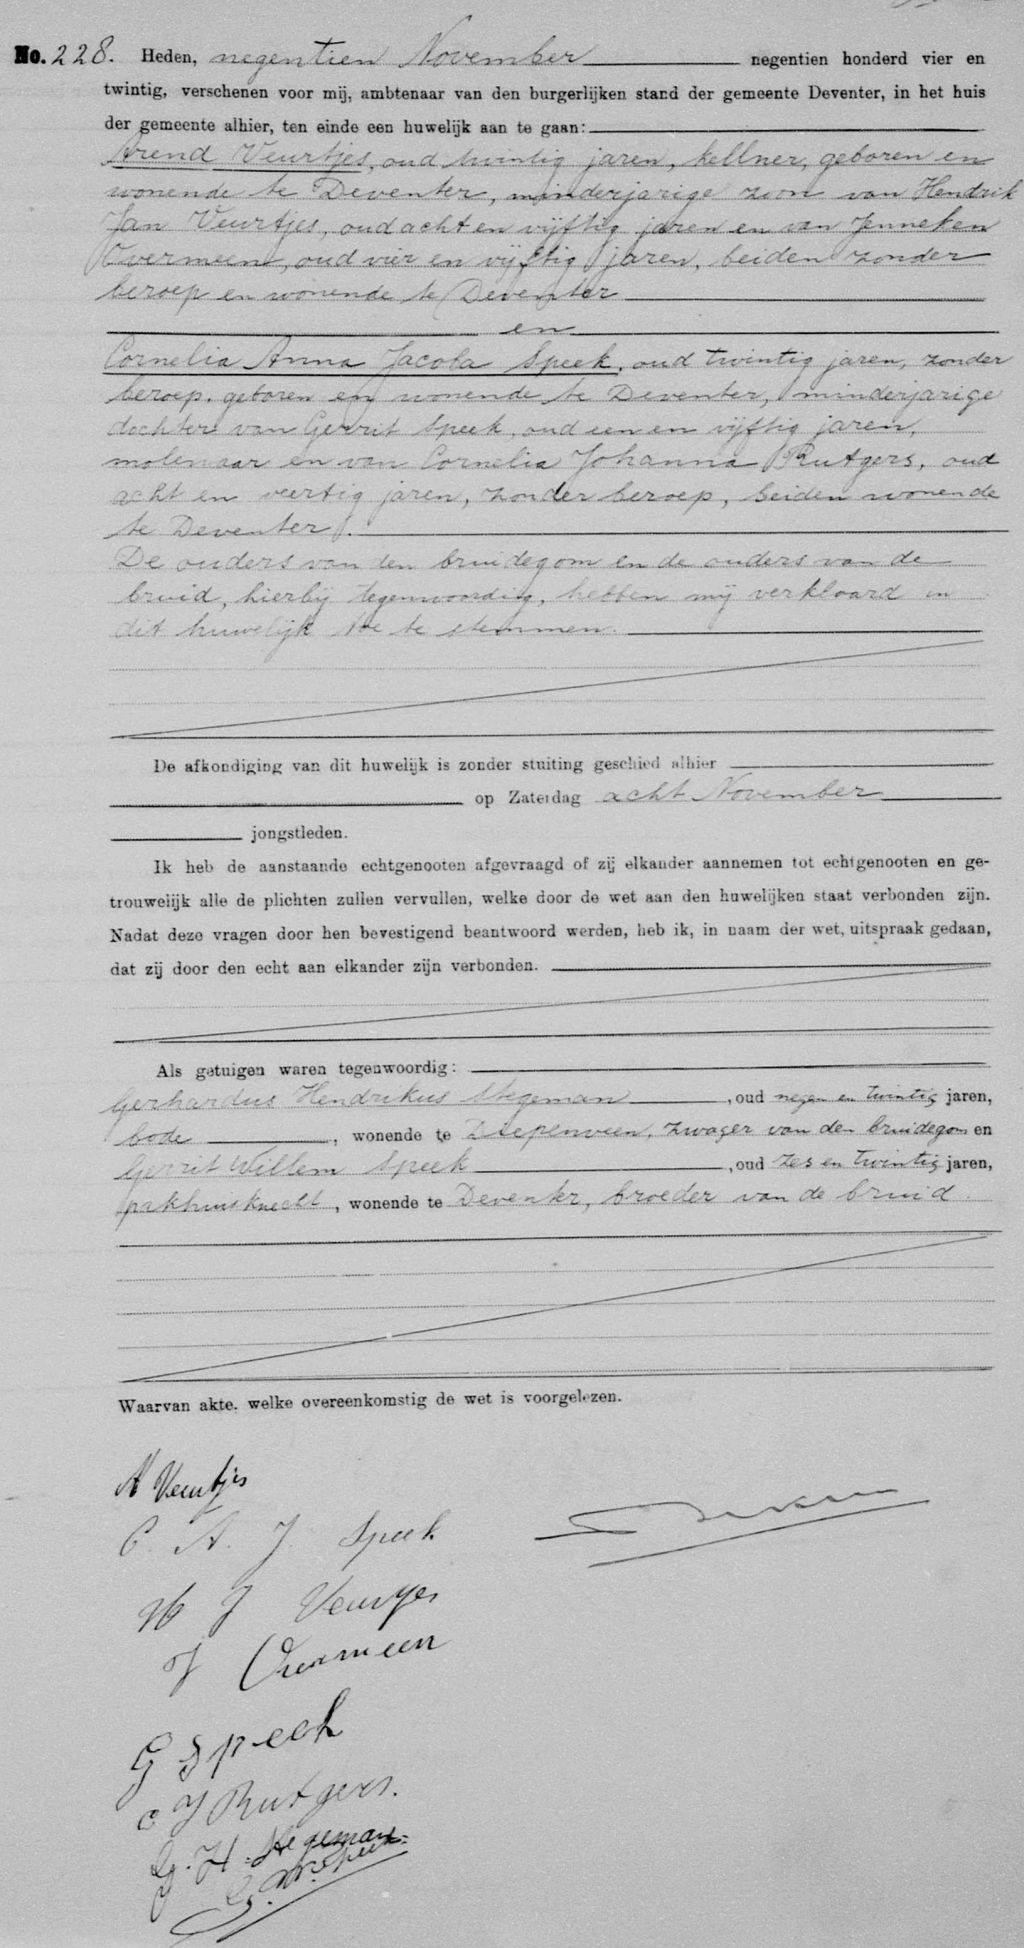 No. 228. Heden, negentien November negentien honderd vier en
twintig, verschenen voor mij, ambtenaar van den burgerlijken stand der gemeente Deventer, in het huis
der gemeente alhier, ten einde een huwelijk aan te gaan:
Arend Veurtjes, oud twintig jaren, kellner, geboren en
wonende te Deventer, minderjarige zoon van Hendrik
Jan Veurtjes, oud acht en vijftig jaren en van Jenneken
Overmeen, oud vier en vijftig jaren, beiden zonder
beroep en wonende te Deventer
en
Cornelia Anna Jacoba Speek, oud twintig jaren, zonder
beroep, geboren en wonende te Deventer, minderjarige
dochter van Gerrit Speek, oud een en vijftig jaren,
molenaar en van Cornelia Johanna Rutgers, oud
acht en veertig jaren, zonder beroep, beiden wonende
te Deventer.
De ouders van den bruidegom en de ouders van de
bruid, hierbij tegenwoordig, hebben mij verklaard in
dit huwelijk toe te stemmen.
De afkondiging van dit huwelijk is zonder stuiting geschied alhier
op Zaterdag acht November
jongstleden.
Ik heb de aanstaande echtgenooten afgevraagd of zij elkander aannemen tot echtgenooten en ge-
trouwelijk alle de plichten zullen vervullen, welke door de wet aan den huwelijken staat verbonden zijn.
Nadat deze vragen door hen bevestigend beantwoord werden, heb ik, in naam der wet, uitspraak gedaan,
dat zij door den echt aan elkander zijn verbonden.
Als getuigen waren tegenwoordig:
Gerhardus Hendrikus Stegeman, oud negen en twintig jaren,
bode, wonende te Diepenveen, zwager van den bruidegom en
Gerrit Willem Speek, oud zes en twintig jaren,
pakhuisknecht, wonende te Deventer, broeder van de bruid.
Waarvan akte, welke overeenkomstig de wet is voorgelezen.
A Veurtjes
C. A. J. Speek
H J Veurtjes
J Overmeen
G Speek
C J Rutgers.
G. H. Stegeman
G. W. Speek